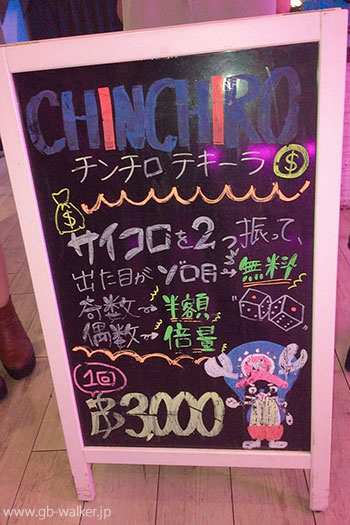 CHINCHIRO
チンチロ テキーラ $
$
サイコロを2つ振って、
出た目が ゾロ目→無料
奇数→半額
偶数→倍量
1回
฿3,000
www.gb-walker.jp